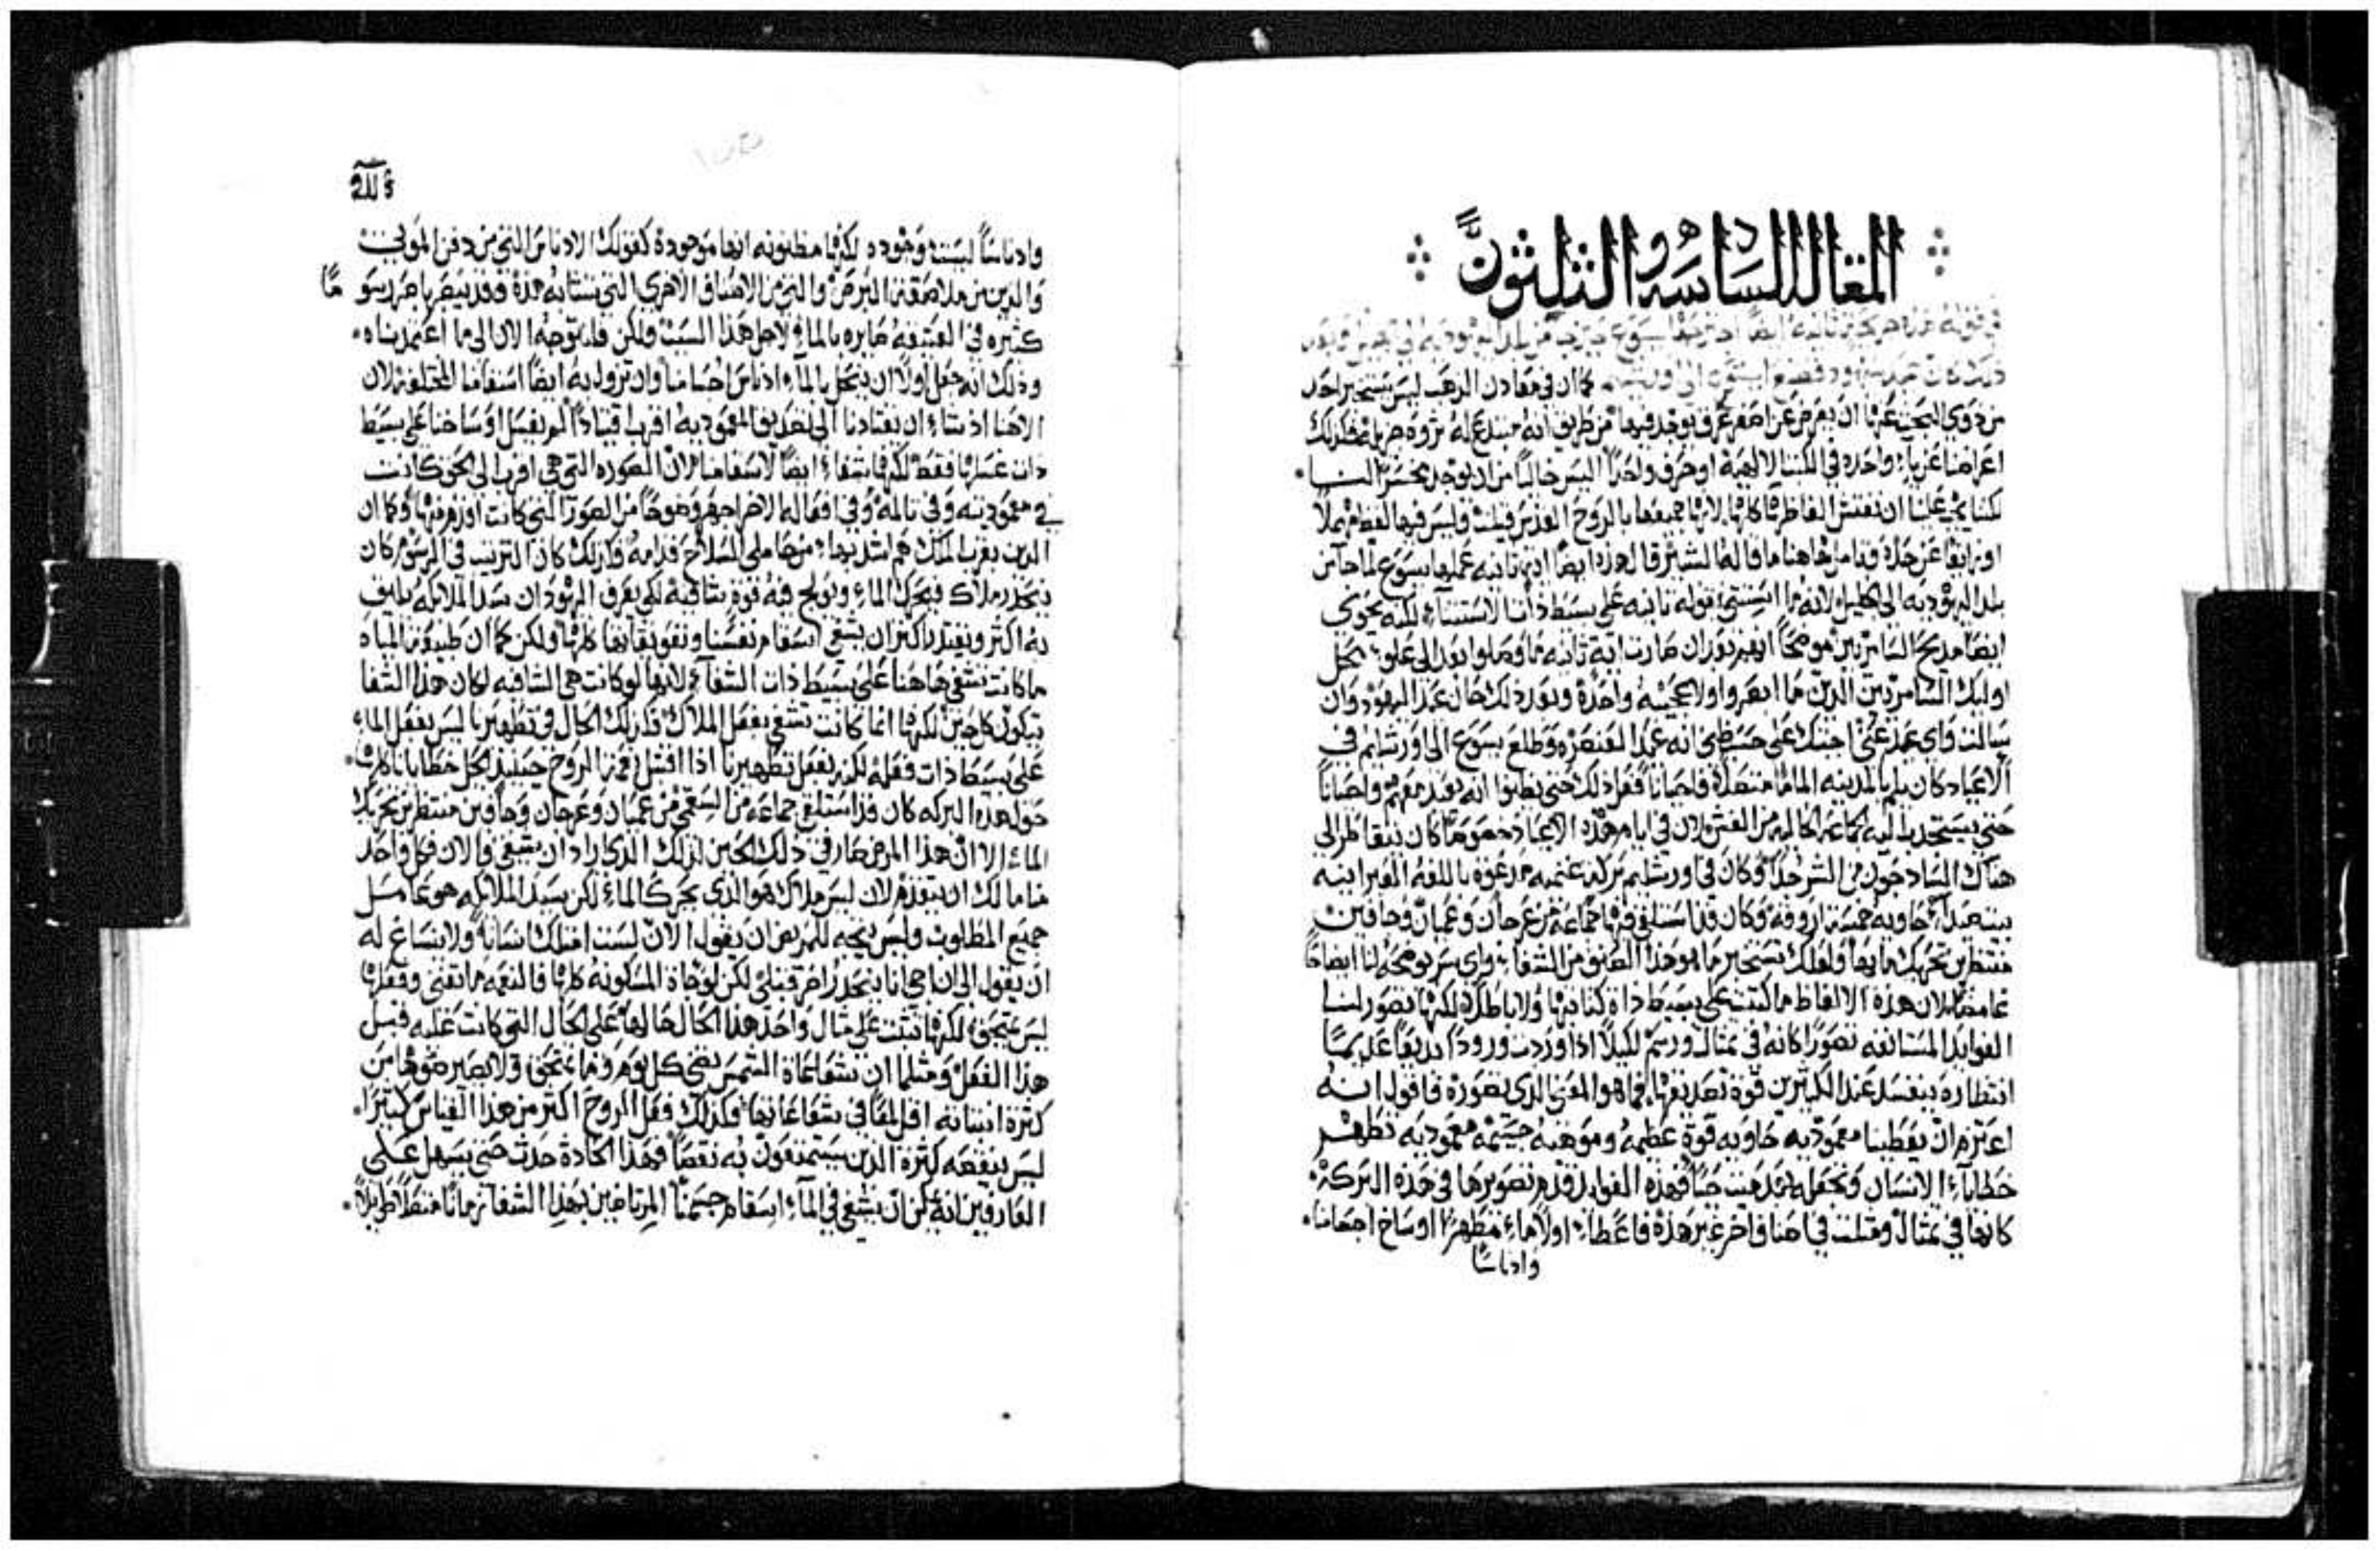 المقاله السادسه والثلثون
في قوله هذه جريحه ثانيه ايضا اجترحها يسوع حين جا من بلد اليهوديه الى الجليل وبعد
ذلك كان عيد اليهود فصعد ايسوع الى اورشليم كما ان في معادن الذهب ليس يستخير احد
من ذوي البحث عنها ان يعرض عن اصغر عرف يوجد فيها من طريق انه يبتدع له ثروه جزيله فكذلك
اعراضنا عن ياء واحده في الكتب الالهيه او حرف واحدا ليس خاليا من ان يوجد بخسر النا
لكننا يجب علينا ان نفتش الفاظها كلها لانها جميعها بالروح القدس قيلت وليس فيها لفظ مهملا
او زايغا عن جدة وتامل هاهنا ما قاله البشير قال هذه ايضا ايه ثانيه عملها يسوع لما جا من
بلد اليهوديه الى الجليل لانه ما استثنى بقوله ثانيه على بسيط ذات الاستثناء لكنه يحوي
ايضا مديح السامريين موضحا انهم بعد ان صارت ايه ثانيه ما وصلوا بعد الى علو محل
اوليك السامريين الذين ما ابصروا ولا عجيبه واحده وبعد ذلك حان عيد اليهود وان
سالت واي عيد عني اجبتك على حسب ظني انه عيد العنصره وطلع يسوع الى اورشليم في
الاعياد كان يلم بالمدينه الماما متصلا واحيانا فعل ذلك حتى يظنوا انه يعيد معهم واحيانا
حتى يستجذب اليه الجماعه الخاليه من الغش لان في ايام هذه الاعياد خصوصا كان يتقاطر الى
هناك الساذجون من الشر جدا وكان في اورشليم بركه غنميه مدعوه باللغه العبرانيه
بيتصدا حاويه خمسه اروقه وكان قد استلقى فيها جماعه من عرجان وعميان وجافين
منتظرين تحريك مايها ولعلك تستخبر ما هو هذا الصنف من الشفاء واي سر يوضحه لنا ايضاحا
غامضا لان هذه الالفاظ ما كتبت على بسيط ذاة كتابتها ولا باطلا لكنها تصور لنا
الفوايد المستانفه تصورا كانه في تمثال ورسم لكيلا اذا وردت ورودا بديعا عديما
انتظاره ينفسد عند الكثيرين قوة تصديقها فما هو المعنى الذي تصوره فاقول انه
اعتزم ان يعطينا معموديه حاويه قوة عظيمه وموهبه جسيمه معموديه تطهر
خطايا الانسان وتجعله بعد ميت حيا فهذه الفوايد تقدم تصويرها في هذه البركه
كانها في تمثال ومثلت في اصناف اخر غير هذه فاعطاء اولا ماء مطهرا اوساخ اجسامنا
وادناسا
وادناسا ليست موجوده لكنها مظنونه انها موجودة كقولك الادناس التي من دفن الموتى
والذين من ملاصقة البرص والتي من الاصناف الاخرى التي تشابه هذه وقد يبصر باصر رسوما
كثيره في العتيقه صايره بالماء لاجل هذا السبب ولكن فلنتوجه الان الى ما اعتمدناه
وذلك انه جعل اولا ان ينحل بالماء ادناس اجسامنا وان تزول به ايضا اسقامنا المختلفه لان
الاهنا اذ شاء ان يقتادنا الى تصديق المعموديه اقرب اقتيادا لم يغسل اوساخنا على بسيط
ذات غسلها فقط لكنها شفاء ايضا لاسقامنا لان الصوره التي هي اقرب الى الحق كانت
في معموديته وفي تالمه وفي افعاله الاخر اجهر وضوحا من الصور التي كانت اقدم منها وكما ان
الذين بقرب الملك هم اشد بهاء من حاملي السلاح قدامه فكذلك كان الترتيب في الرسوم كان
ينحدر ملاك فيحرك الماء ويولج فيه قوة شافيه لكي يعرف اليهود ان سيد الملايكه يليق
به اكثر ويقتدر اكثر ان يشفي اسقام نفسنا ونفوسنا كلها ولكن كما ان طبيعة المياه
ما كانت تشفي هاهنا على بسيط ذات الشفاء لانها لو كانت هي الشافيه لكان هذا الشفا
يتكون كل حين لكنها انما كانت تشفي بفعل الملاك كذلك الحال في تطهيرنا ليس يفعل الماء
على بسيط ذات فعله لكنه يفعل تطهيرنا اذا اقتبل نعمة الروح حينيذ يحل خطايانا كلها
حول هذه البركه كان قد استلقى جماعه من السقمى من عميان وعرجان وجافين منتظرين تحريك
الماء الا ان هذا المرض صار في ذلك الحين لذلك الذي اراد ان يشفى والان فكل واحد
منا مالك ان يتقدم لان ليس ملاك هو الذي يحرك الماء لكن سيد الملايكه هو عامل
جميع المطلوب وليس يتجه للمريض ان يقول الان لست امتلك انسانا ولا ينساغ له
ان يقول الى ان اجي انا ينحدر اخر قبلي لكن لو جاة المسكونه كلها فالنعمه ما تفنى وفعلها
ليس يمتحق لكنها تثبت على مثال واحد هذا الحال حالها على الحال التي كانت عليه قبل
هذا الفعل ومثلما ان شعاعاة الشمس تضي كل يوم وما تمتحق ولا يصير ضوها من
كثرة انبثاثه اقل لمعا في شعاعاتها وكذلك فعل الروح اكثر من هذا القياس كثيرا
ليس ينقصه كثرة الذين يستمتعون به نقصا فهذا الحادث حدث حتى يسهل على
العارفين انه يمكن ان يشفى في الماء اسقام جسمنا المرتاضين بهذا الشفا زمانا متصلا طويلا